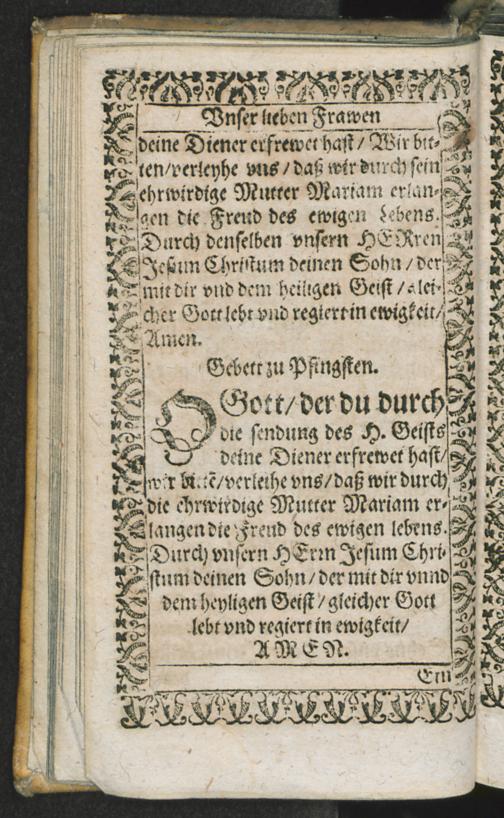 Vnser lieben Frawen
deine Diener erfrewet hast / Wir bit-
ten/verleyhe vns / daß wir durch sein
ehrwirdige Mutter Mariam erlan-
gen die Freud des ewigen Lebens.
Durch denselben vnsern HERren
Jesum Christum deinen Sohn / der
mit dir vnd dem heiligen Geist / glei-
cher Gott lebt vnd regiert in ewigkeit/
Amen.
Gebett zu Pfingsten.
O Gott/ der du durch
die sendung des H. Geists
deine Diener erfrewet hast/
wir bittē/verleihe vns/daß wir durch
die ehrwirdige Mutter Mariam er-
langen die Freud des ewigen lebens.
Durch vnsern HErin Jesum Chri-
stum deinen Sohn / der mit dir vnnd
dem heyligen Geist / gleicher Gott
lebt vnd regiert in ewigkeit/
AMEN.
Ein